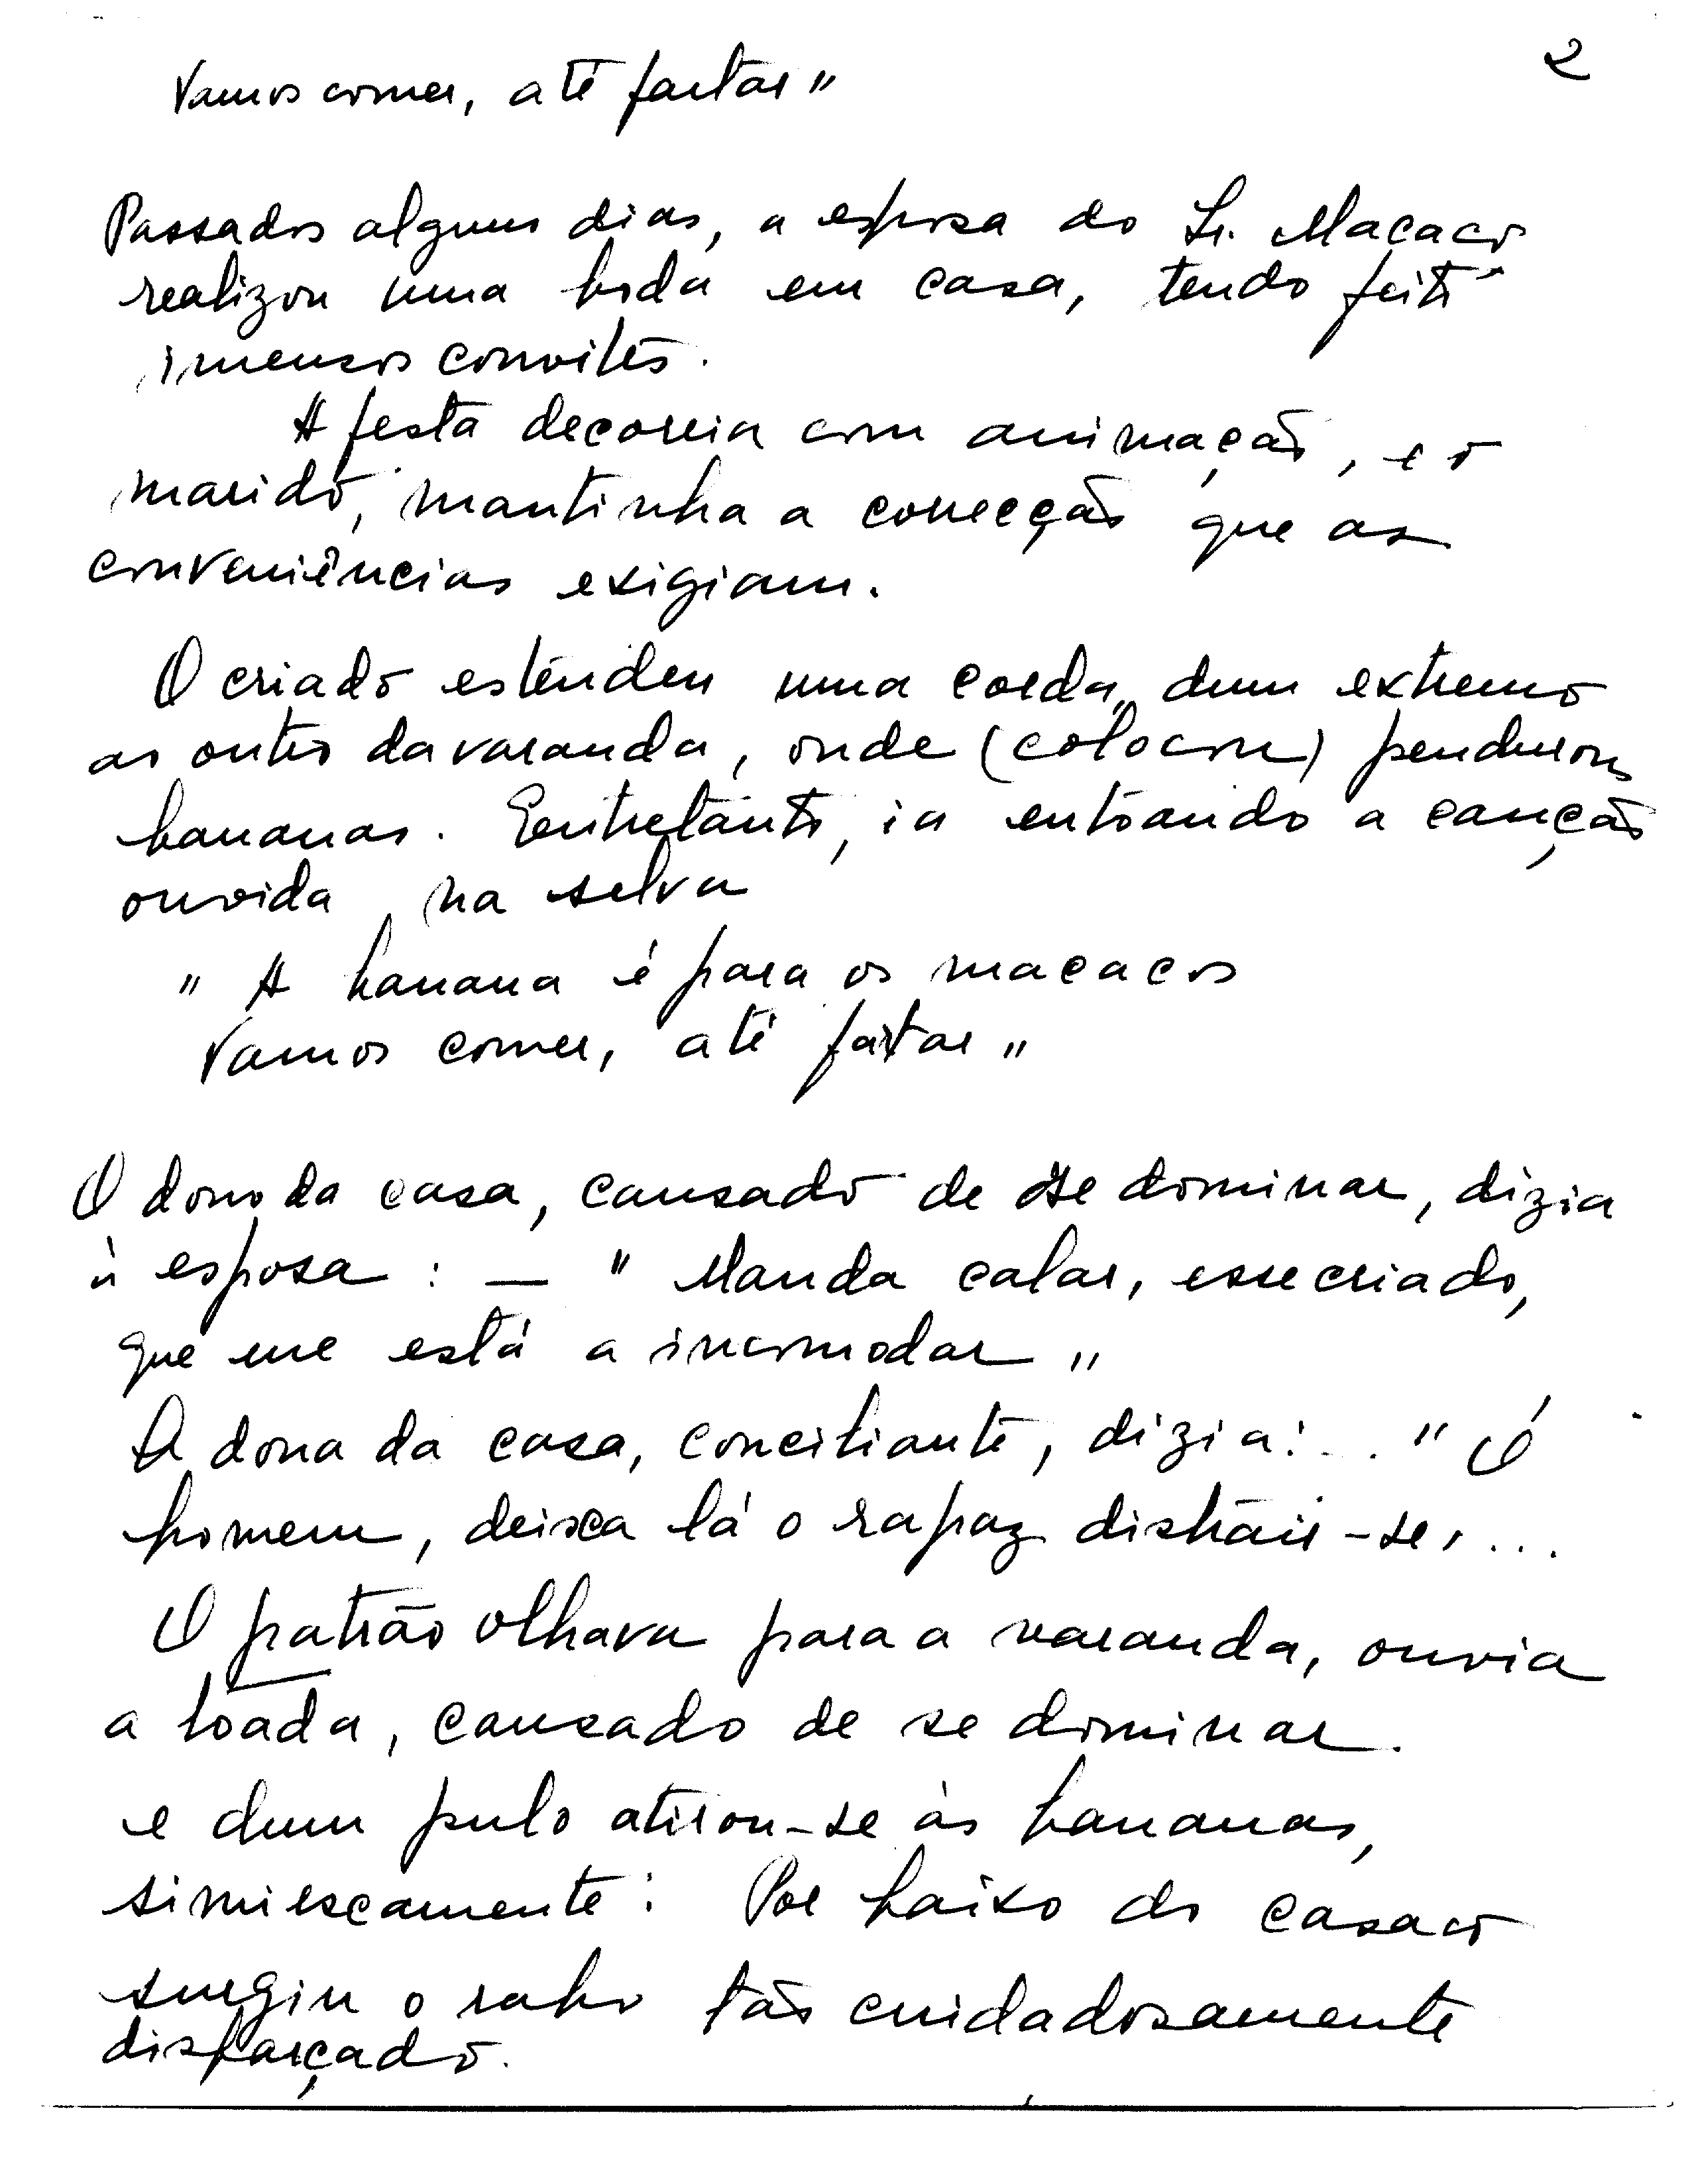 2
Vamos comer, até fartar"
Passados alguns dias, a esposa do Sr. Macaco
realizou uma boda em casa, tendo feito
imensos convites.
A festa decorria com animação, e o
marido, mantinha a correcção que as
conveniências exigiam.
O criado estendeu uma corda, dum extremo
ao outro da varanda, onde (colocou) pendurou
bananas. Entretanto, ia entoando a canção
ouvida, na selva
" A banana é para os macacos
Vamos comer, até fartar "
O dono da casa, cansado de se dominar, dizia
à esposa : — " Manda calar, esse criado,
que me está a incomodar "
A dona da casa, conciliante, dizia: .. " Ó
homem, deixa lá o rapaz distrair-se, ...
O patrão olhava para a varanda, ouvia
a toada, cansado de se dominar.
e dum pulo atirou-se às bananas,
simiescamente: Por baixo do casaco
surgiu o rabo tão cuidadosamente
disfarçado.